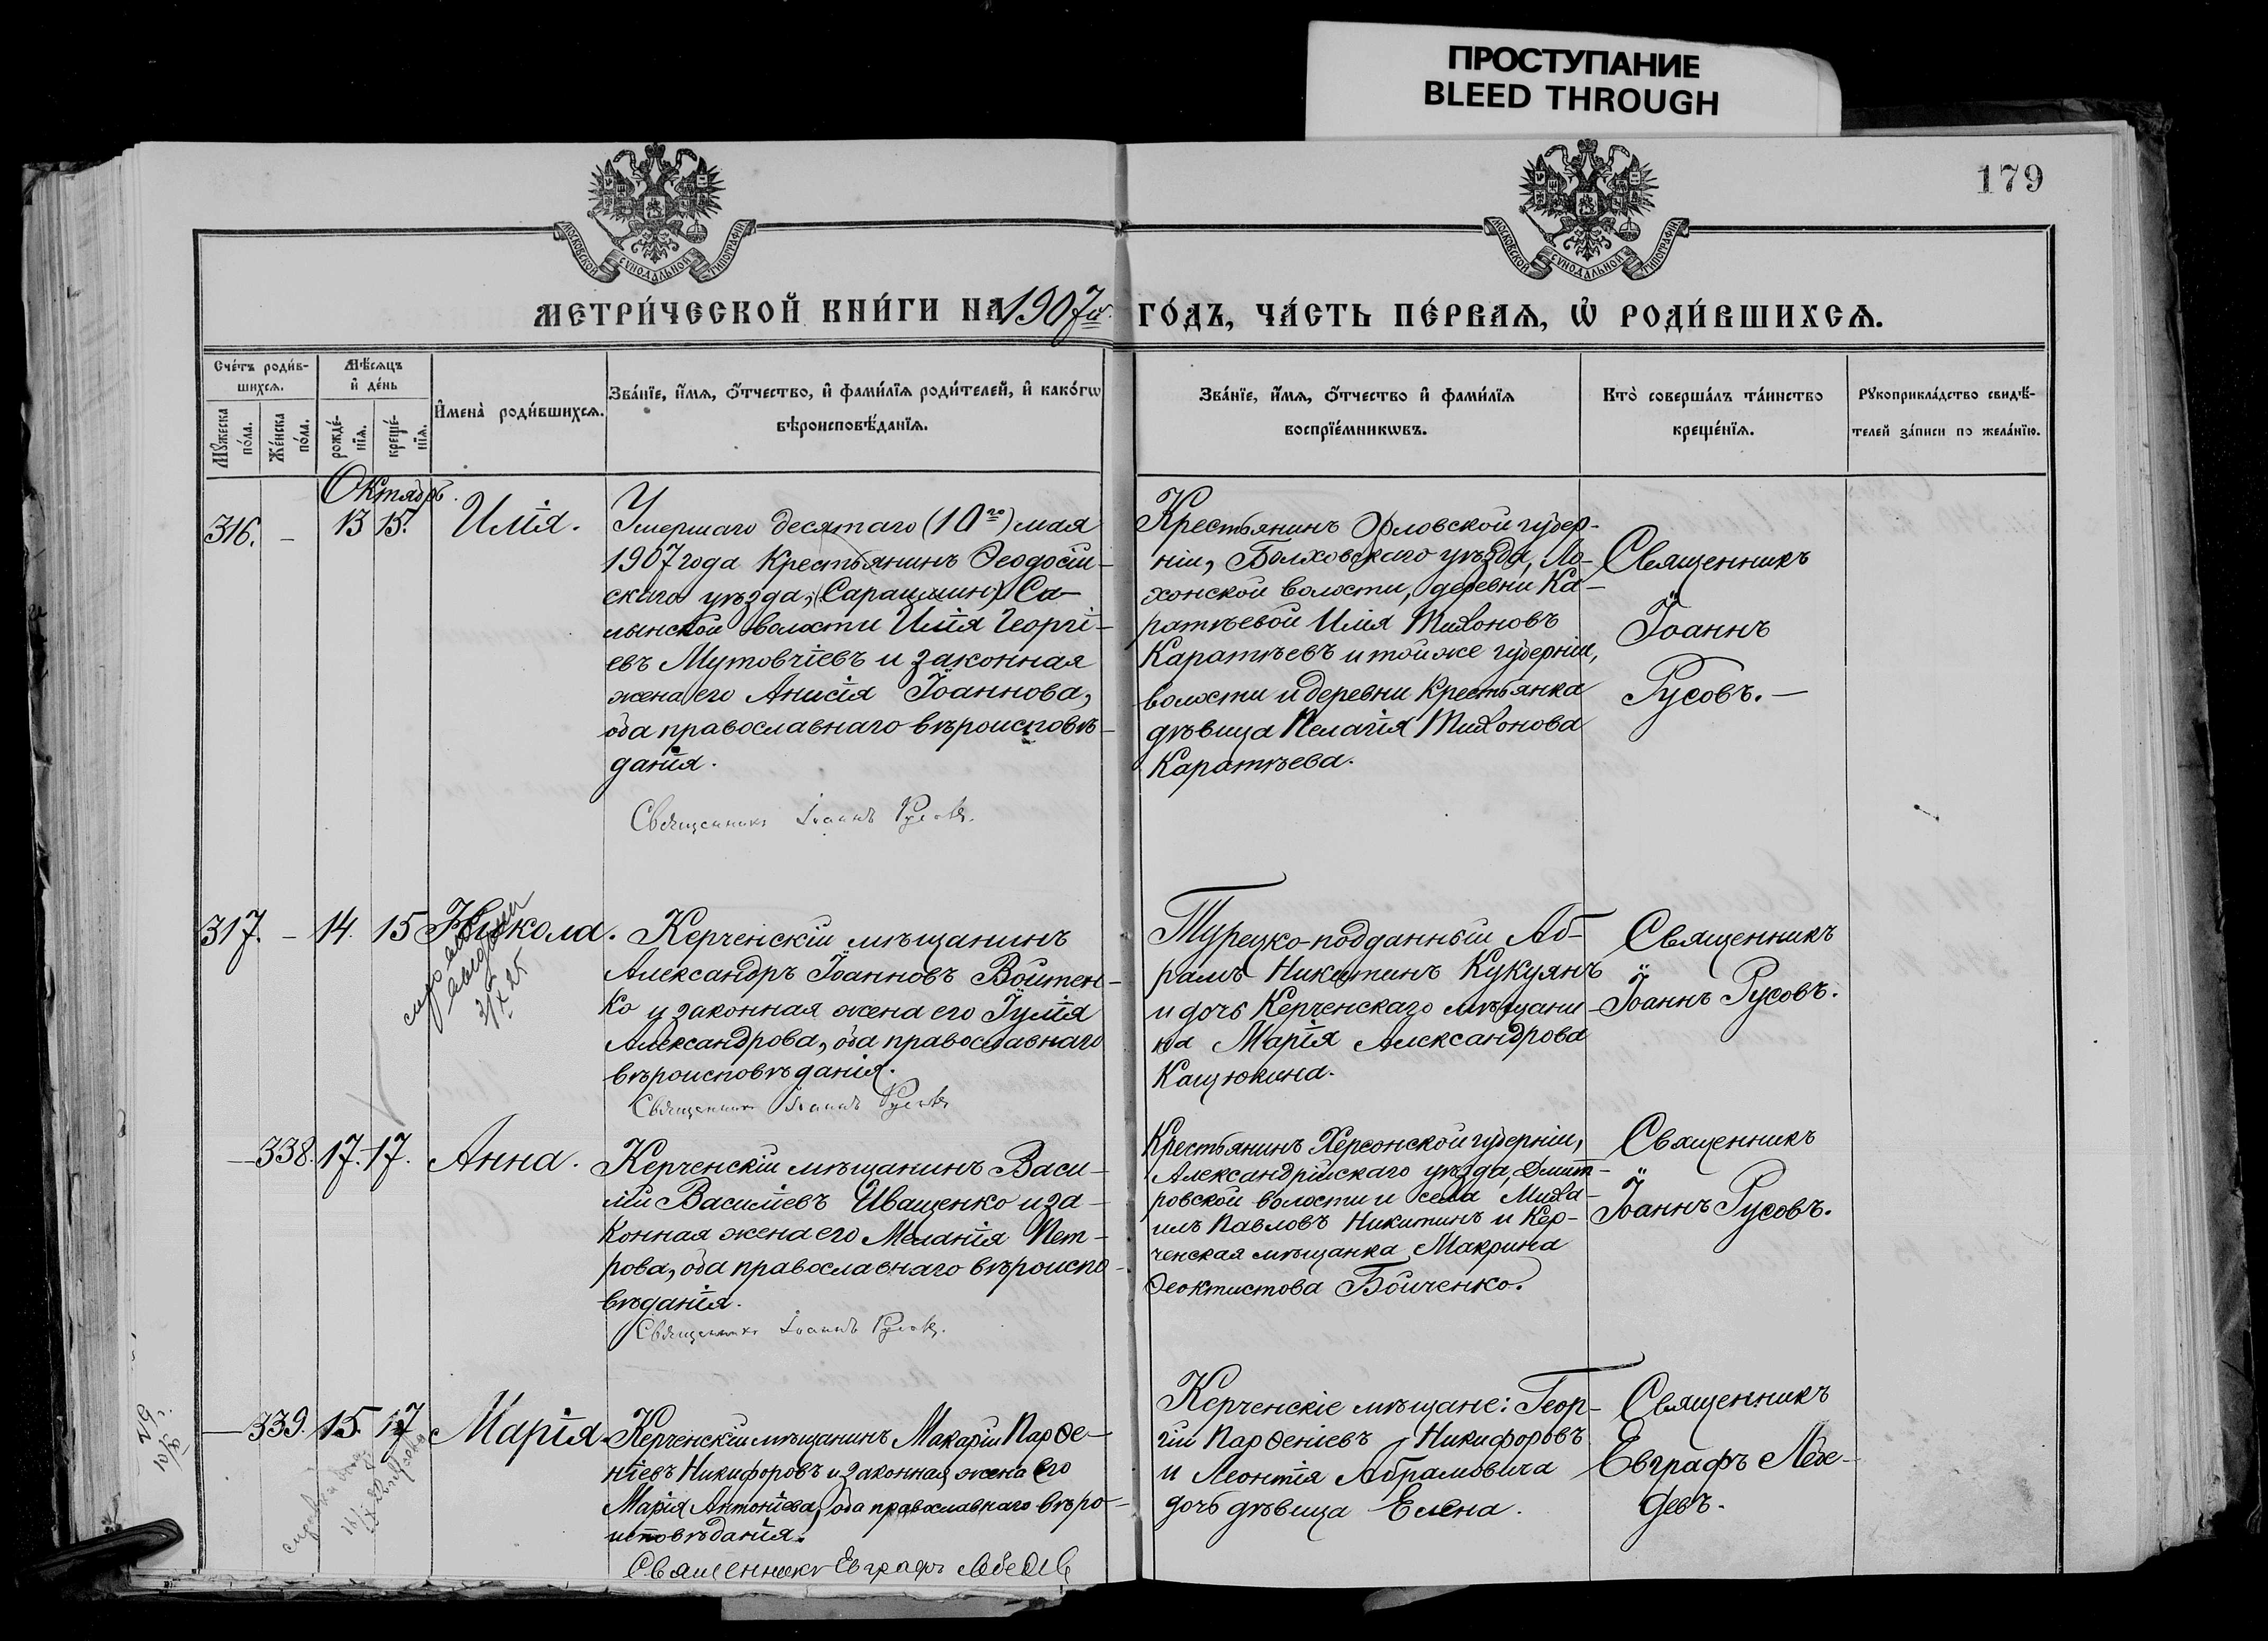 ПРОСТУПАНИЕ
BLEED THROUGH
179
МОСКОВСКОЙ СУНОДАЛЬНОЙ ТИПОГРАФІИ
МОСКОВСКОЙ СУНОДАЛЬНОЙ ТИПОГРАФІИ
МЕТРИ́ЧЕСКОЙ КНИ́ГИ НА 1907й ГО́ДЪ, ЧА́СТЬ ПЕ́РВАѦ, Ѡ҆ РОДИ́ВШИХСѦ.
Сче́тъ роди́в-
шихсѧ.
Мꙋжеска
по́ла.
Же́нска
по́ла.
Мѣ́сѧцъ
и҆ де́нь
рожде́-
нїѧ.
креще́-
нїѧ.
И҆мена̀ роди́вшихсѧ.
Зва́нїе, и҆́мѧ, ѻ҆́тчество, и҆ фами́лїѧ роди́телей, и҆ како́гѡ
вѣроисповѣ́данїѧ.
Зва́нїе, и҆́мѧ, ѻ҆́тчество и҆ фами́лїѧ
воспрїе́мникѡвъ.
Кто̀ соверша́лъ та́инство
креще́нїѧ.
Рꙋкоприкла́дство свидѣ́-
телей за́писи по жела́нїю.
Октябрь.
316. - 13 15. Илія.
Умершаго десятаго (10го) мая
1907 года крестьянинъ Ѳеодосій-
скаго уѣзда, (Сарацмин) Са-
лынской волости Илія Георгі-
евъ Мутовчіевъ и законная
жена его Анисія Іоаннова,
оба православнаго вѣроисповѣ-
данія.
Священникъ Іоаннъ Русовъ.
Крестьянинъ Орловской губер-
ніи, Болховскаго уѣзда, Ло-
хонской волости, деревни Ка-
ратѣевой Илія Тихоновъ
Каратѣевъ и той же губерніи,
волости и деревни крестьянка
дѣвица Пелагія Тихонова
Каратѣева.
Священникъ
Іоаннъ
Русовъ. —
317. - 14. 15 Никола.
Керченскій мѣщанинъ
Александръ Іоанновъ Войтен-
ко и законная жена его Іулія
Александрова, оба православнаго
вѣроисповѣданія.
Священникъ Іоаннъ Русовъ
Турецко-подданный Аб-
рамъ Никитинъ Кукуянъ
и дочь Керченскаго мѣщани-
на Марія Александрова
Кацюкина.
Священникъ
Іоаннъ Русовъ.
— 338. 17. 17. Анна.
Керченскій мѣщанинъ Васи-
лій Василіевъ Иващенко и за-
конная жена его Меланія Пет-
рова, оба православнаго вѣроиспо-
вѣданія.
Священникъ Іоаннъ Русовъ.
Крестьянинъ Херсонской губерніи,
Александрійскаго уѣзда, Дмит-
ровской волости и села Миха-
илъ Павловъ Никитинъ и Кер-
ченская мѣщанка Макрина
Ѳеоктистова Бойченко.
Священникъ
Іоаннъ Русовъ.
— 339. 15. 17 Марія.
Керченскій мѣщанинъ Макарій Парѳе-
ніевъ Никифоровъ и законная жена его
Марія Антоніева, оба православнаго вѣро-
исповѣданія.
Священникъ Евграфъ Лебедевъ
Керченскіе мѣщане: Геор-
гій Парѳеніевъ Никифоровъ
и Леонтія Абрамовича
дочь дѣвица Елена.
Священникъ
Евграфъ Лебе-
девъ.